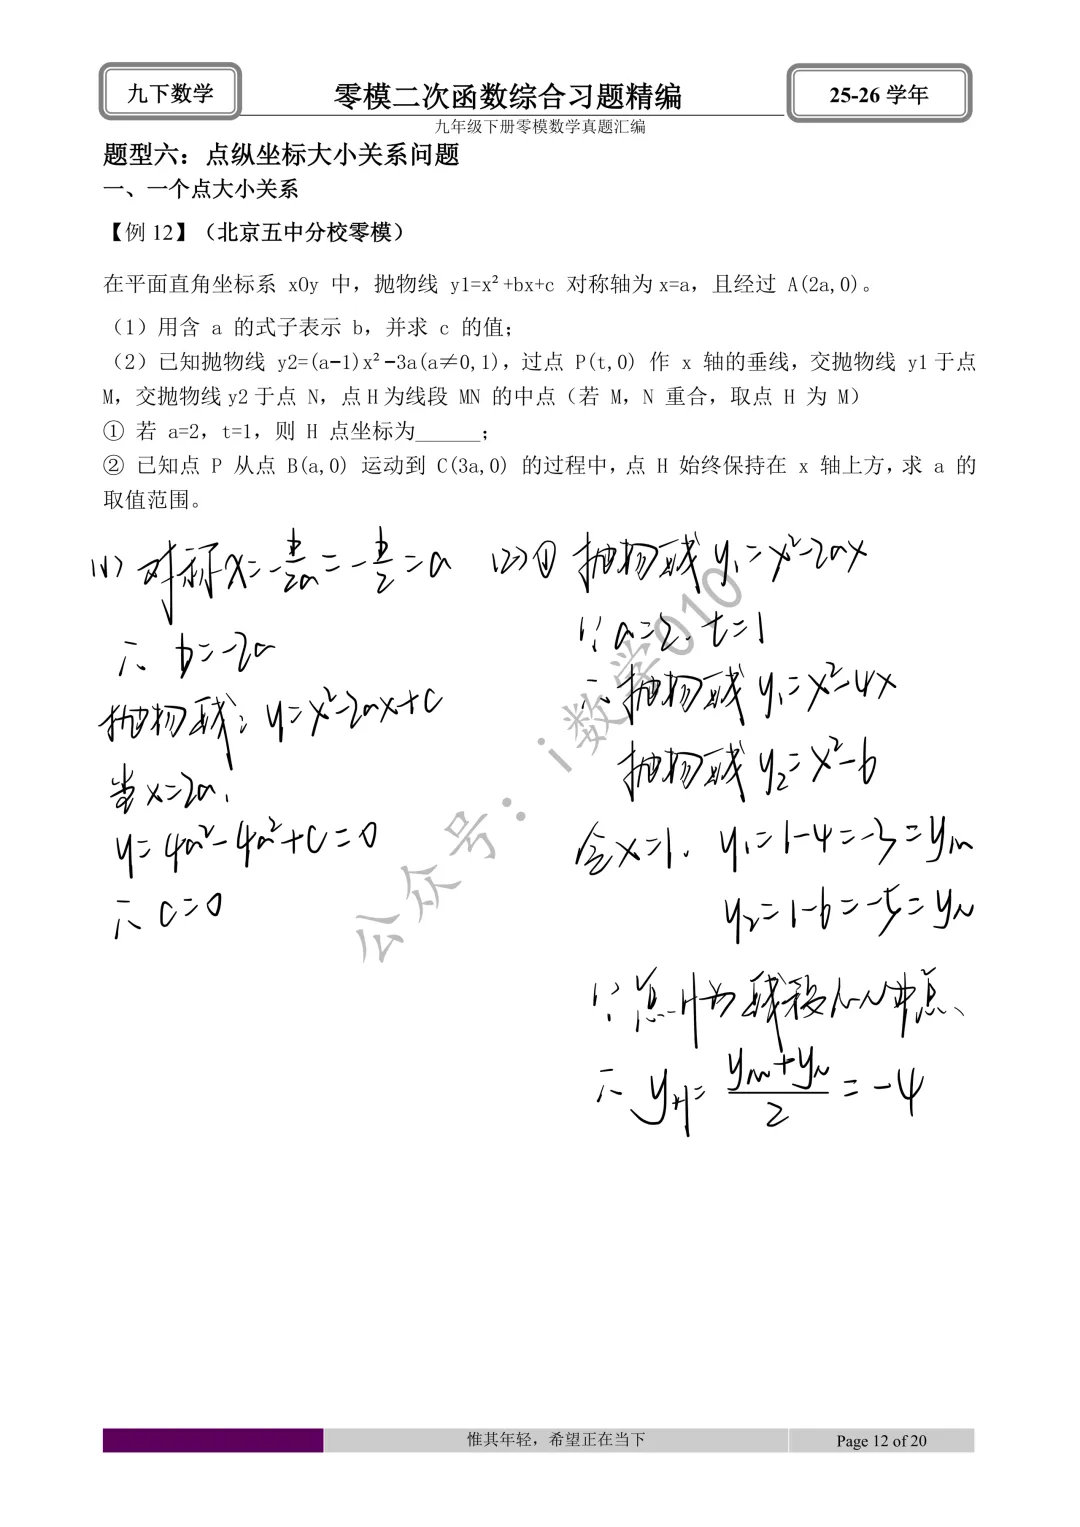 九下数学
零模二次函数综合习题精编
25-26 学年
九年级下册零模数学真题汇编
题型六：点纵坐标大小关系问题
一、一个点大小关系
【例 12】（北京五中分校零模）
在平面直角坐标系 xOy 中，抛物线 y1=x²+bx+c 对称轴为x=a，且经过 A(2a,0)。
（1）用含 a 的式子表示 b，并求 c 的值；
（2）已知抛物线 y2=(a-1)x²-3a(a≠0,1)，过点 P(t,0) 作 x 轴的垂线，交抛物线 y1于点
M，交抛物线y2于点 N，点H为线段 MN 的中点（若 M，N 重合，取点 H 为 M）
① 若 a=2，t=1，则 H 点坐标为______；
② 已知点 P 从点 B(a,0) 运动到 C(3a,0) 的过程中，点 H 始终保持在 x 轴上方，求 a 的
取值范围。
(1) 对称x=-b/2a=-b/2=a
∴ b=-2a
抛物线: y=x²-2ax+c
当x=2a,
y=4a²-4a²+c=0
∴ c=0
(2)① 抛物线 y₁=x²-2ax
∵ a=2, t=1
∴抛物线 y₁=x²-4x
抛物线 y₂=x²-6
令x=1, y₁=1-4=-3=yM
y₂=1-6=-5=yN
∵点H为线段MN中点、
∴ yH=(yM+yN)/2=-4
公众号：i数学010
惟其年轻，希望正在当下
Page 12 of 20